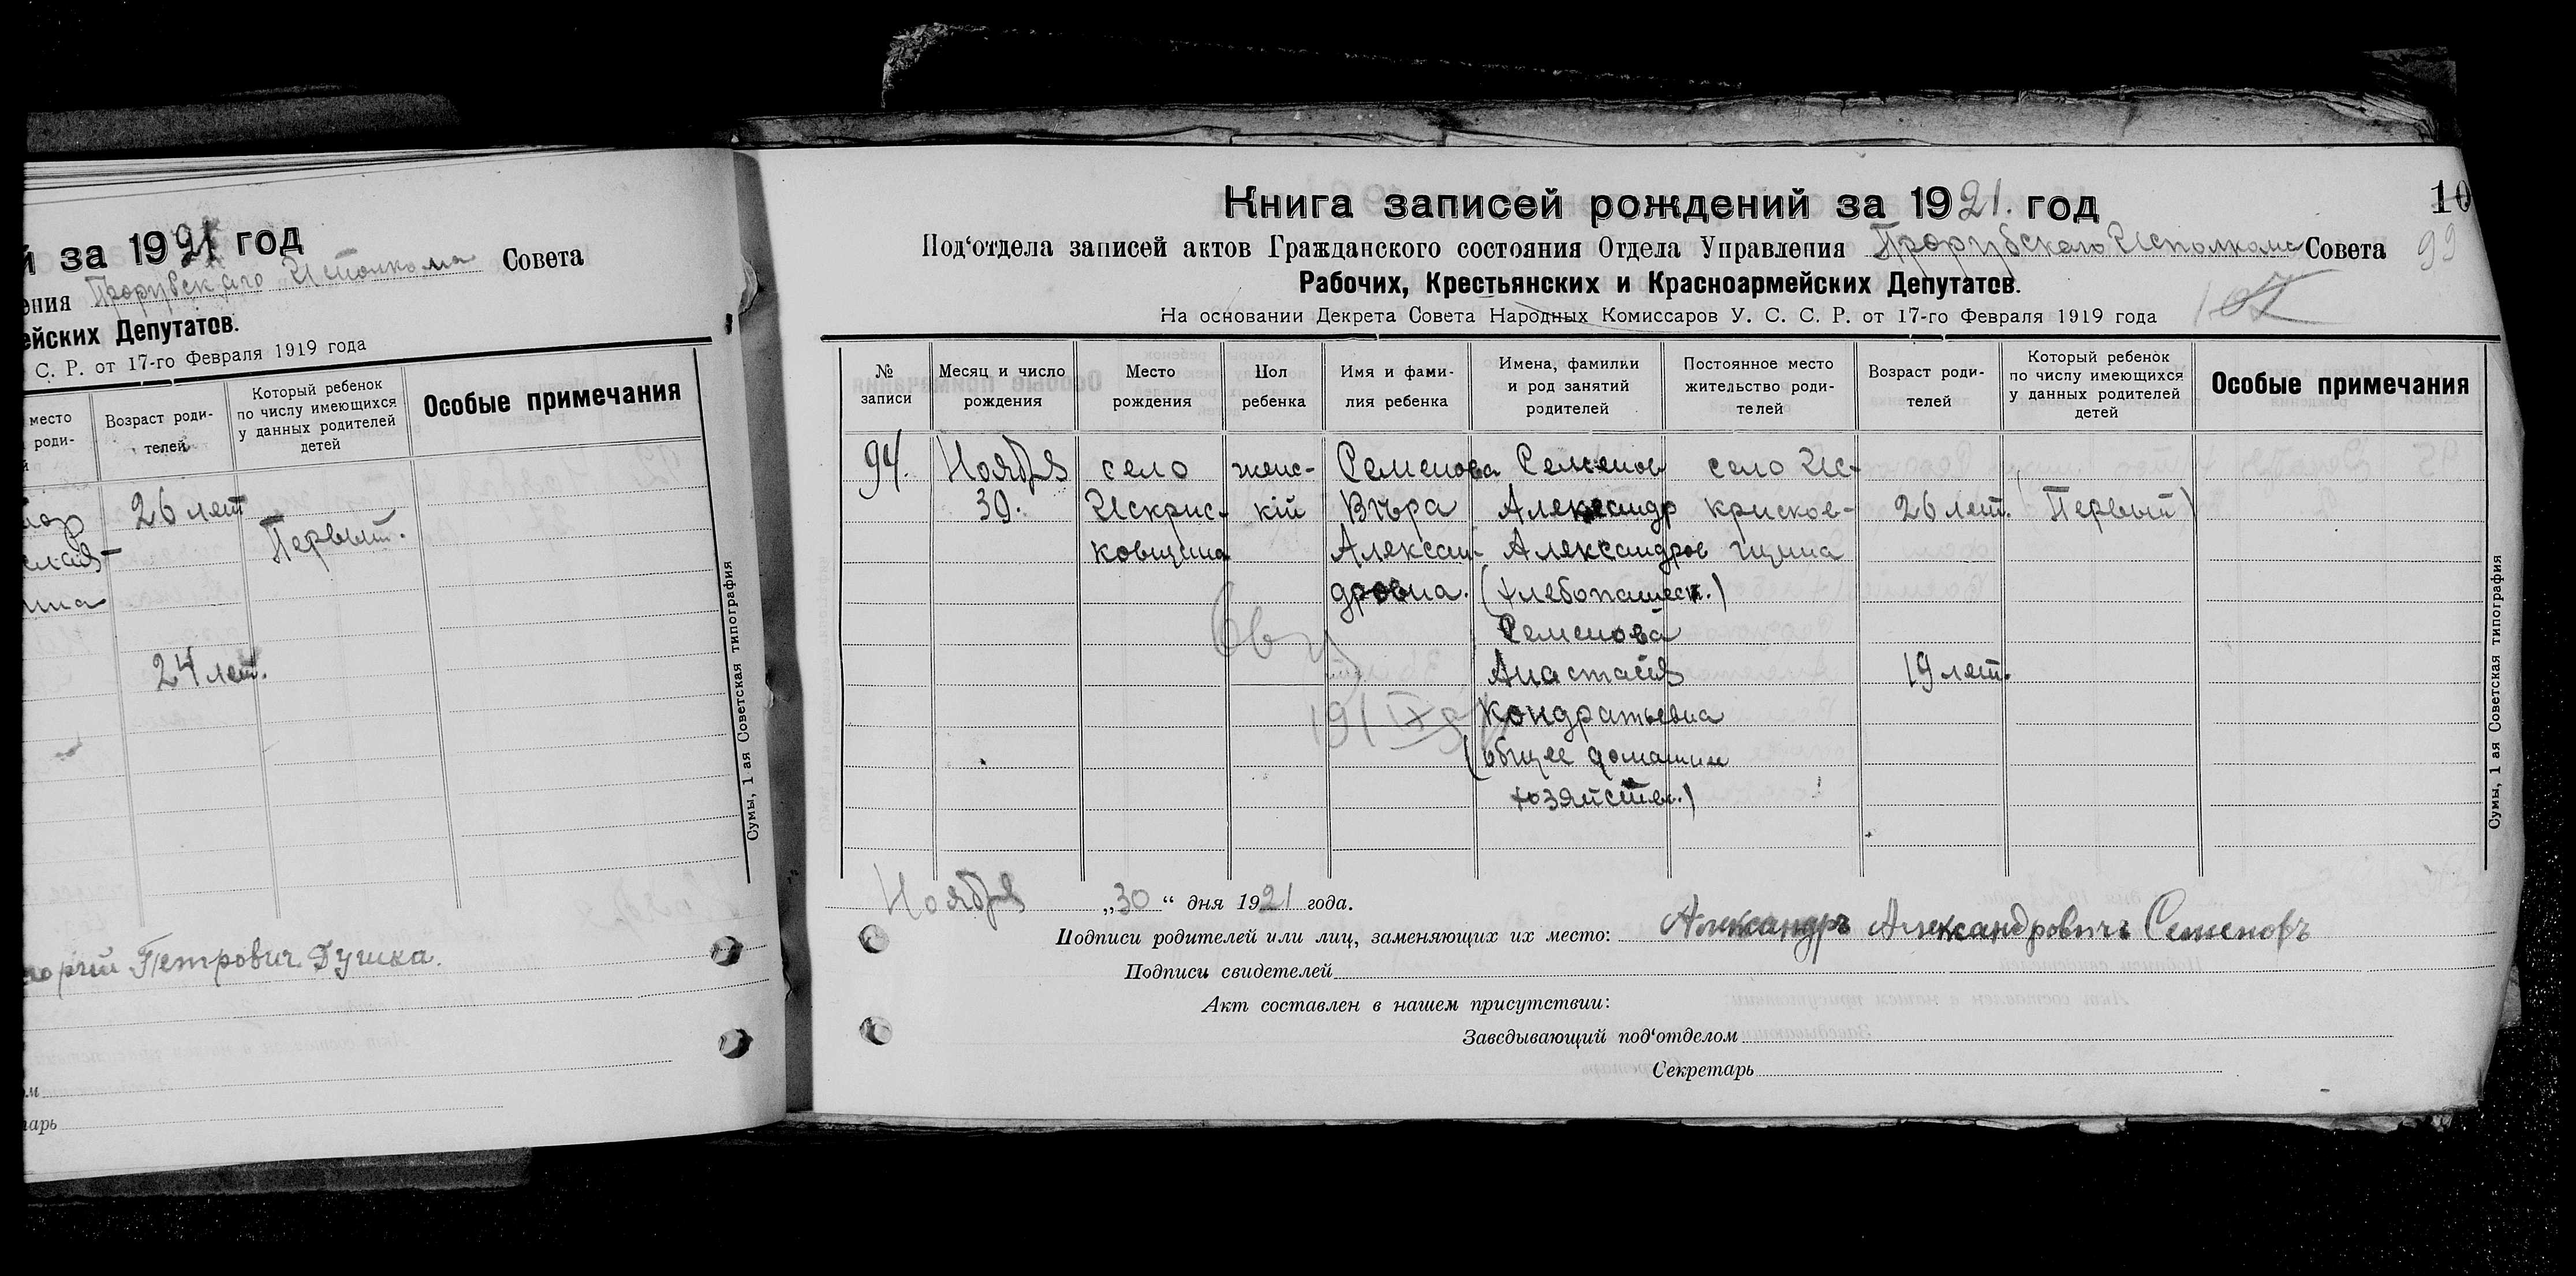 й за 1921 год
ения Прорубскаго Исполкома Совета
ейских Депутатов.
С. Р. от 17-го Февраля 1919 года
место
роди-
й
Возраст роди-
телей
Который ребенок
по числу имеющихся
у данных родителей
детей
Особые примечания
26 лет
Первый.
24 лет.
Сумы, 1 ая Советская типография
Петрович Душка.
ом
тарь
Книга записей рождений за 1921. год
10
Под‘отдела записей актов Гражданского состояния Отдела Управления Прорубскаго Исполкома Совета
99
Рабочих, Крестьянских и Красноармейских Депутатов.
На основании Декрета Совета Народных Комиссаров У. С. С. Р. от 17-го Февраля 1919 года
№
записи
Месяц и число
рождения
Место
рождения
Пол
ребенка
Имя и фами-
лия ребенка
Имена, фамилии
и род занятий
родителей
Постоянное место
жительство роди-
телей
Возраст роди-
телей
Который ребенок
по числу имеющихся
у данных родителей
детей
Особые примечания
94.
Ноября
30.
село
Искрис-
ковщина
женс-
кій
Семенова
Вѣра
Алексан-
дровна.
Семенов
Александр
Александров
(хлебопашест.)
Семенова
Анастасія
Кондратьевна
(общее домашнее
хозяйство.)
село Ис-
крисков-
щина
26 лет.
19 лет.
Первый
Сумы, 1 ая Советская типография
Ноября „30“ дня 1921 года.
Подписи родителей или лиц, заменяющих их место: Александръ Александровичъ Семеновъ
Подписи свидетелей
Акт составлен в нашем присутствии:
Заведывающий под‘отделом
Секретарь